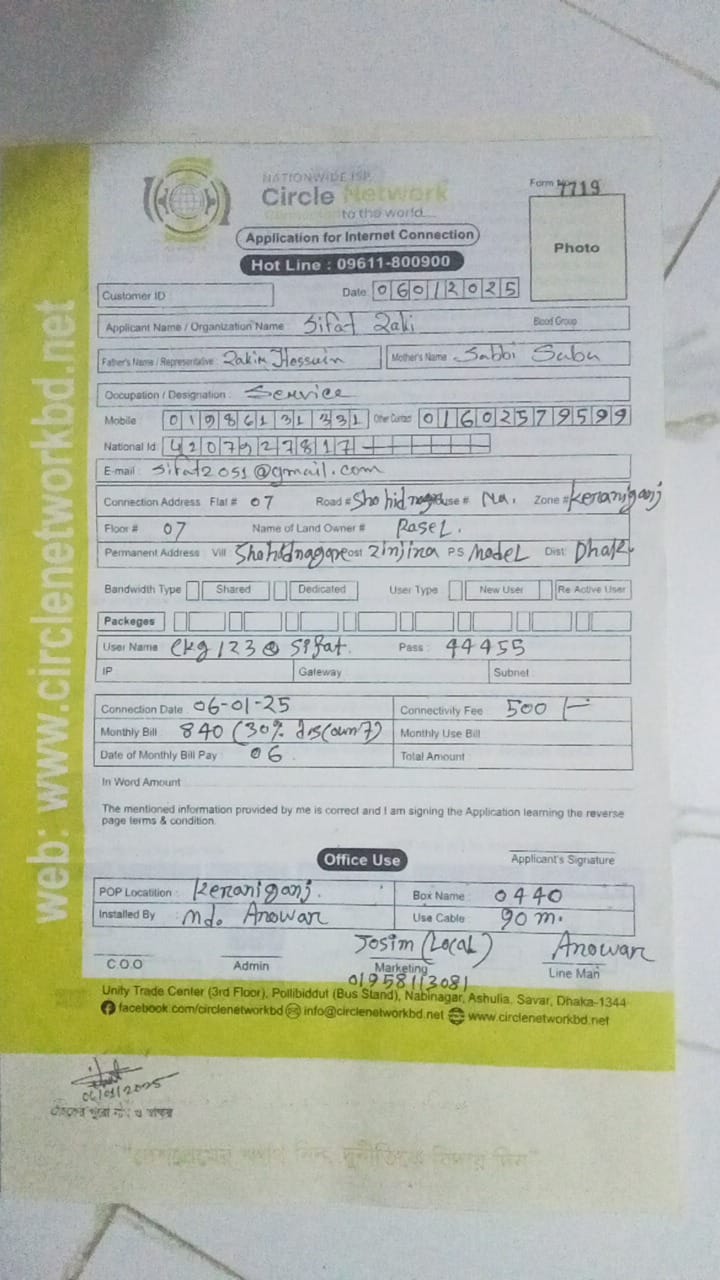 NATIONWIDE ISP
Circle Network
Connection to the world....
Form No 7719
Application for Internet Connection
Hot Line : 09611-800900
Photo
Customer ID
Date 06012025
Applicant Name / Organization Name Sifat Zaki Blood Group
Father's Name / Representative : Zakir Hossain Mother's Name Sabbi Saba
Occupation / Designation : Service
Mobile 01986131331 Other Contact 01602579599
National Id 4207927817
E-mail : sifat2051@gmail.com
Connection Address Flat # 07 Road # Shohidnagar House # Na. Zone # Keraniganj
Floor # 07 Name of Land Owner # Rasel.
Permanent Address Vill Shohidnagar Post Zinjira PS Model Dist: Dhaka
Bandwidth Type Shared Dedicated User Type New User Re Active User
Packeges
User Name Ckg123@sifat. Pass : 44455
IP Gateway Subnet
Connection Date 06-01-25 Connectivity Fee 500/-
Monthly Bill 840 (30% discount) Monthly Use Bill
Date of Monthly Bill Pay : 06 Total Amount
In Word Amount
The mentioned information provided by me is correct and I am signing the Application learning the reverse
page terms & condition.
Applicant's Signature
Office Use
POP Locatition : Keraniganj. Box Name : 0440
Installed By : Md. Anowar Use Cable : 90 m.
Josim (Local) Anowar
C.O.O Admin Marketing Line Man
01958113081
Unity Trade Center (3rd Floor), Pollibiddut (Bus Stand), Nabinagar, Ashulia, Savar, Dhaka-1344
facebook.com/circlenetworkbd info@circlenetworkbd.net www.circlenetworkbd.net
web: www.circlenetworkbd.net
06/01/2025